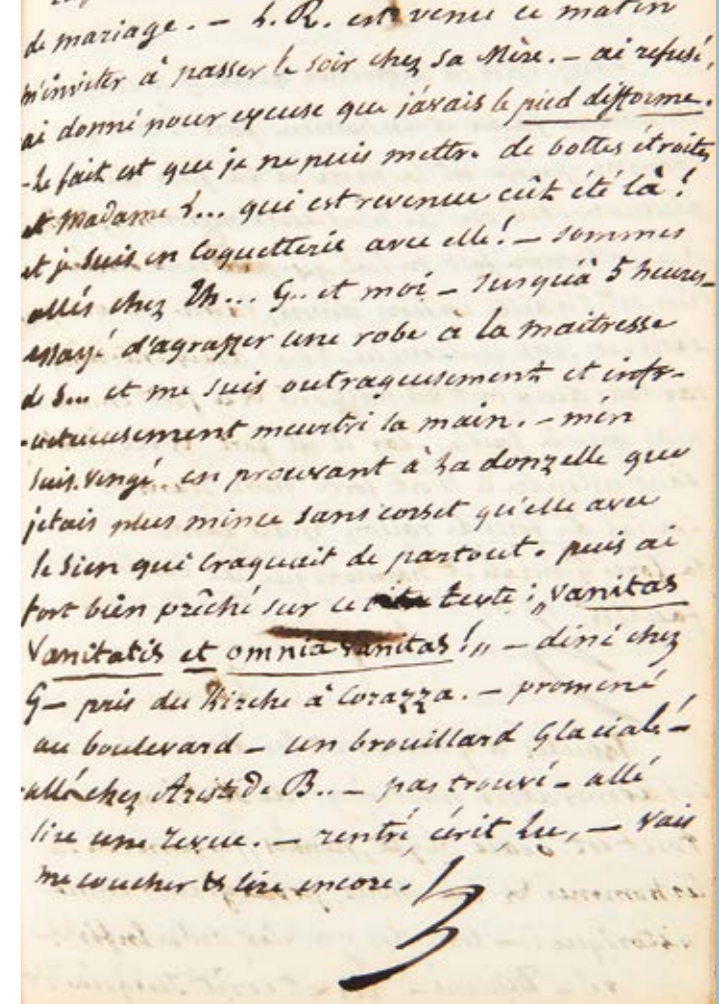 de mariage. – L. R. est venu ce matin
m'inviter à passer le soir chez sa Mère. – ai refusé,
ai donné pour excuse que j'avais le pied difforme.
– Le fait est que je ne puis mettre de bottes étroites
et Madame L... qui est revenue eût été là !
et je suis en coquetterie avec elle ! – sommes
allés chez Th... G.. et moi – Jusqu'à 5 heures –
essayé d'agraffer une robe a la maitresse
de S... et me suis outrageusement et infr-
-uctueusement meurtri la main. – m'en
suis vengé en prouvant à la donzelle que
j'étais plus mince sans corset qu'elle avec
le sien qui craquait de partout. puis ai
fort bien prêché sur ce texte : „Vanitas
Vanitatis et omnia vanitas !„ – diné chez
G – pris du Kirche à Corazza. – promené
au boulevard – un brouillard glacial. –
allé chez Aristide B.. – pas trouvé – allé
lire une revue. – rentré, écrit Lu, – vais
me coucher & lire encore.